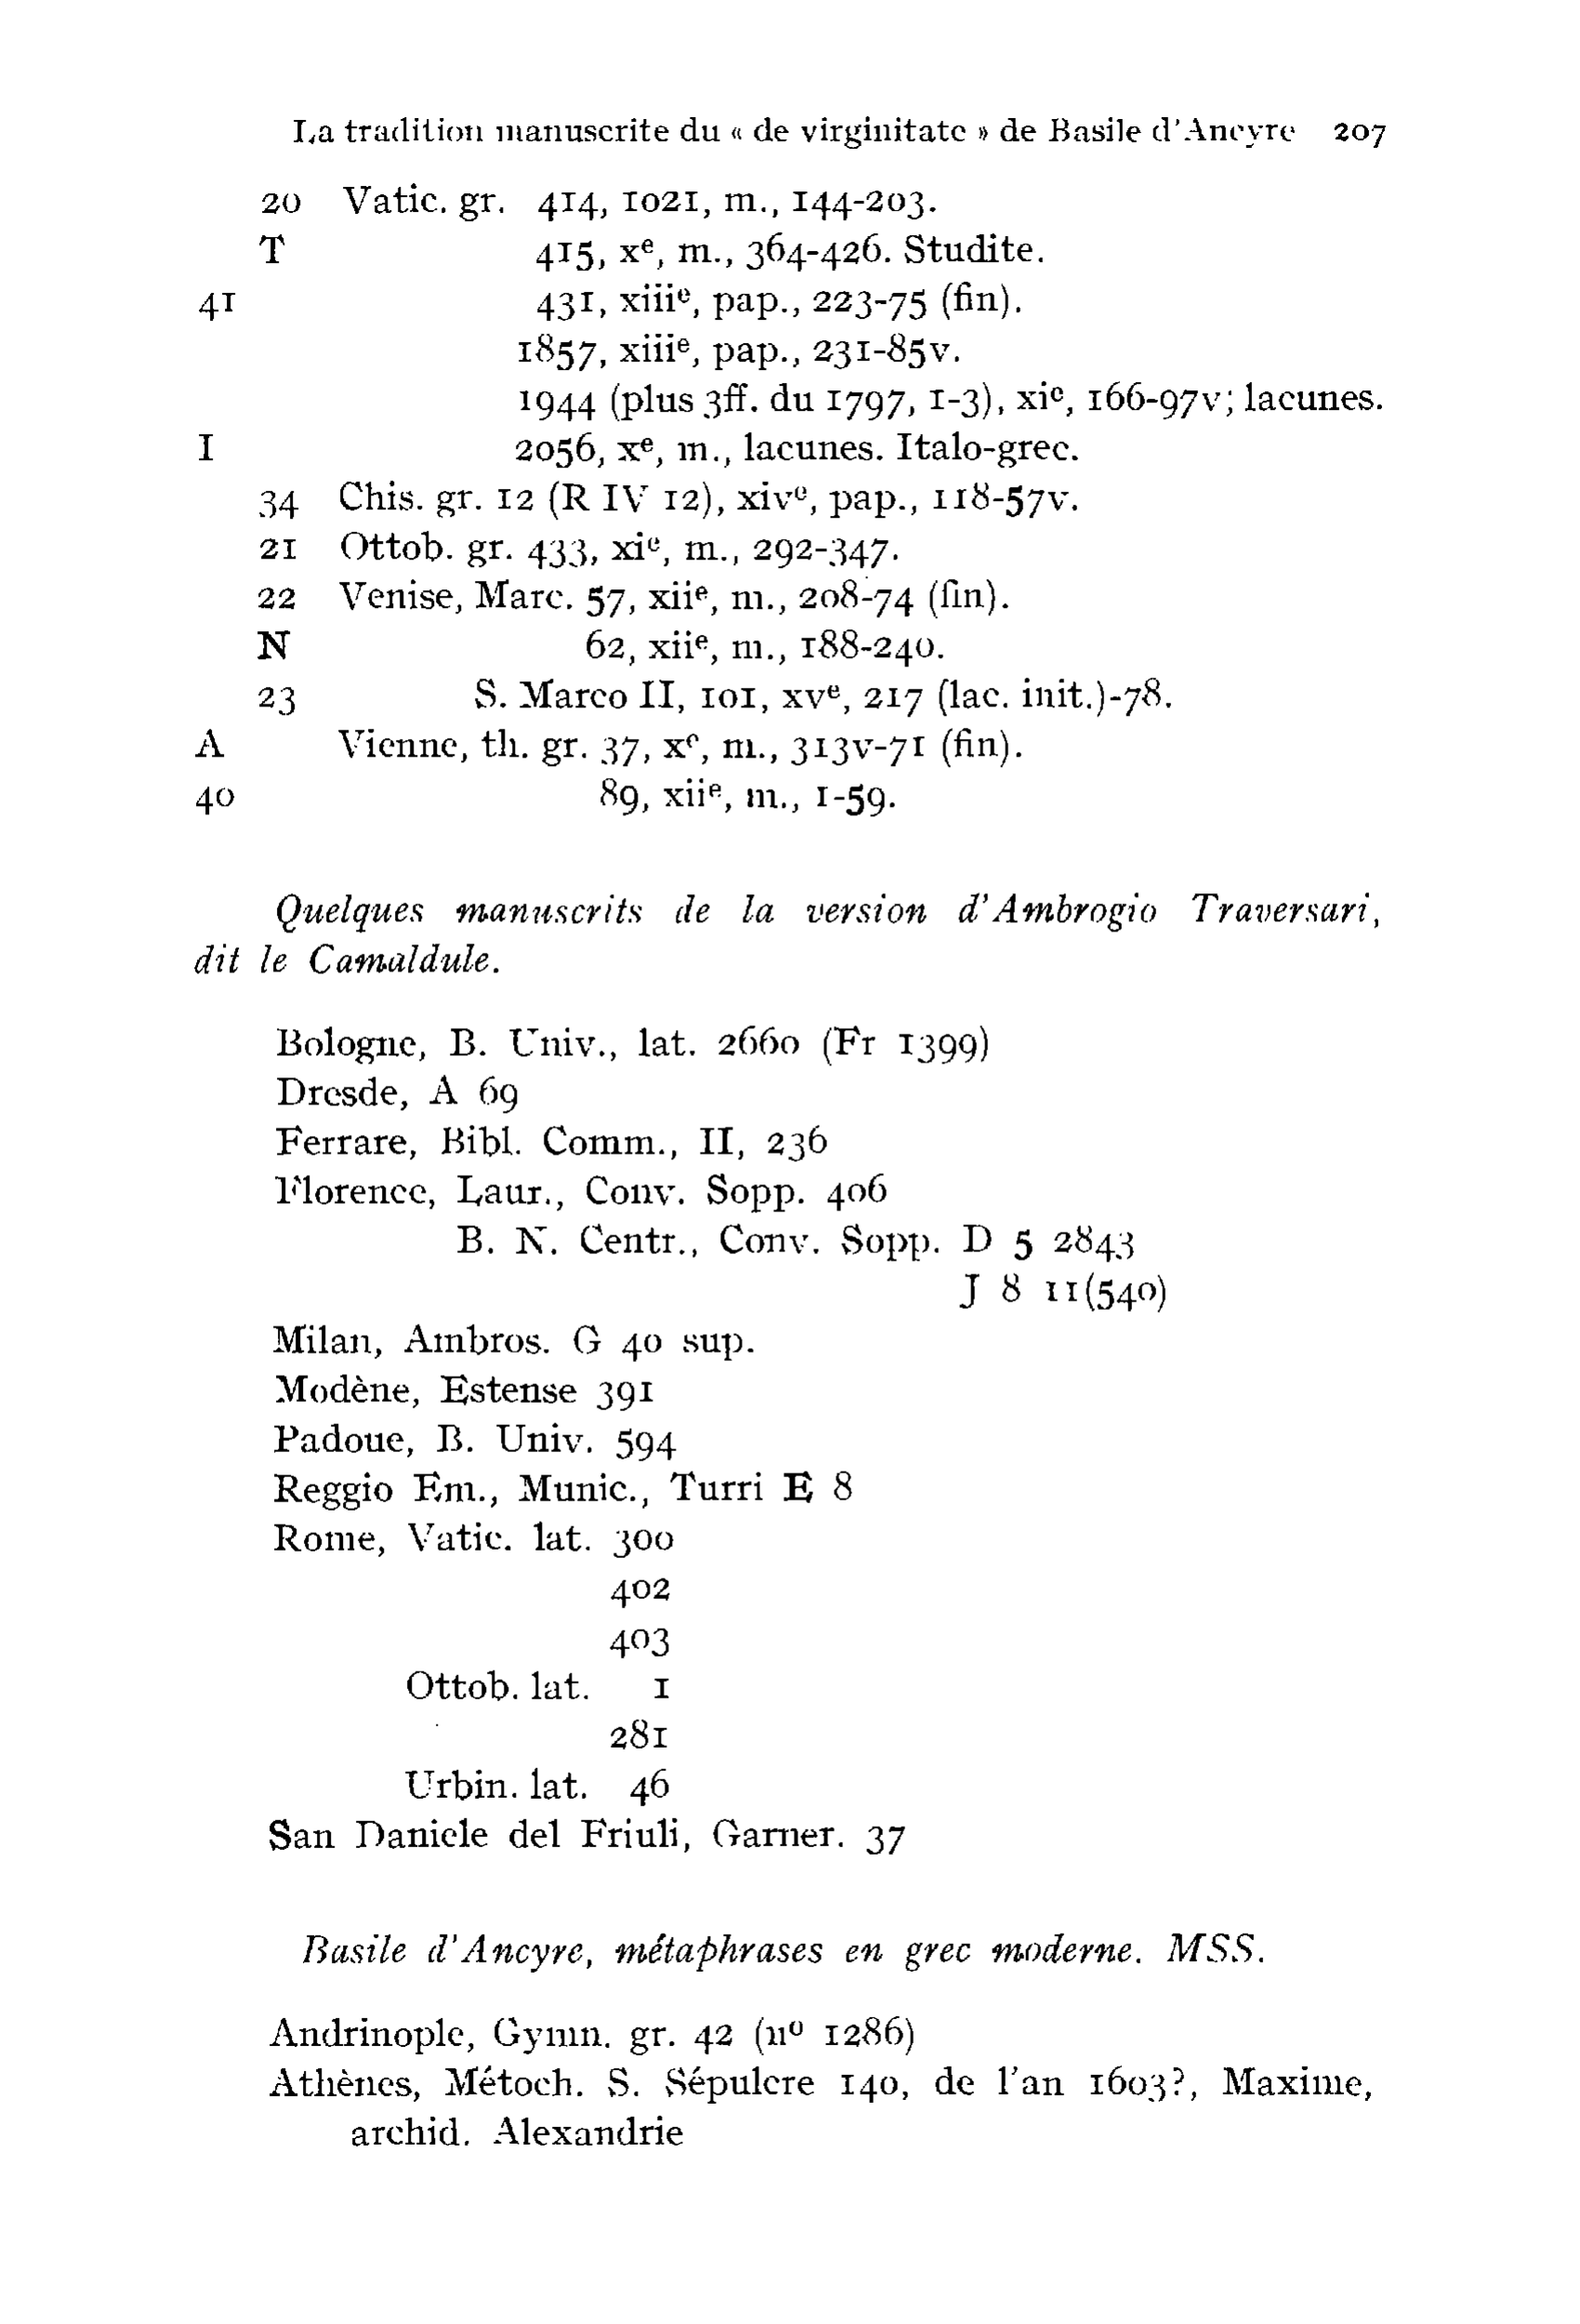 La tradition manuscrite du « de virginitate » de Basile d'Ancyre 207
20 Vatic. gr. 414, 1021, m., 144-203.
T 415, xe, m., 364-426. Studite.
41 431, xiiie, pap., 223-75 (fin).
1857, xiiie, pap., 231-85v.
1944 (plus 3ff. du 1797, 1-3), xie, 166-97v; lacunes.
I 2056, xe, m., lacunes. Italo-grec.
34 Chis. gr. 12 (R IV 12), xive, pap., 118-57v.
21 Ottob. gr. 433, xie, m., 292-347.
22 Venise, Marc. 57, xiie, m., 208-74 (fin).
N 62, xiie, m., 188-240.
23 S. Marco II, 101, xve, 217 (lac. init.)-78.
A Vienne, th. gr. 37, xe, m., 313v-71 (fin).
40 89, xiie, m., 1-59.
Quelques manuscrits de la version d'Ambrogio Traversari,
dit le Camaldule.
Bologne, B. Univ., lat. 2660 (Fr 1399)
Dresde, A 69
Ferrare, Bibl. Comm., II, 236
Florence, Laur., Conv. Sopp. 406
B. N. Centr., Conv. Sopp. D 5 2843
J 8 11(540)
Milan, Ambros. G 40 sup.
Modène, Estense 391
Padoue, B. Univ. 594
Reggio Em., Munic., Turri E 8
Rome, Vatic. lat. 300
402
403
Ottob. lat. 1
281
Urbin. lat. 46
San Daniele del Friuli, Garner. 37
Basile d'Ancyre, métaphrases en grec moderne. MSS.
Andrinople, Gymn. gr. 42 (no 1286)
Athènes, Métoch. S. Sépulcre 140, de l'an 1603?, Maxime,
archid. Alexandrie